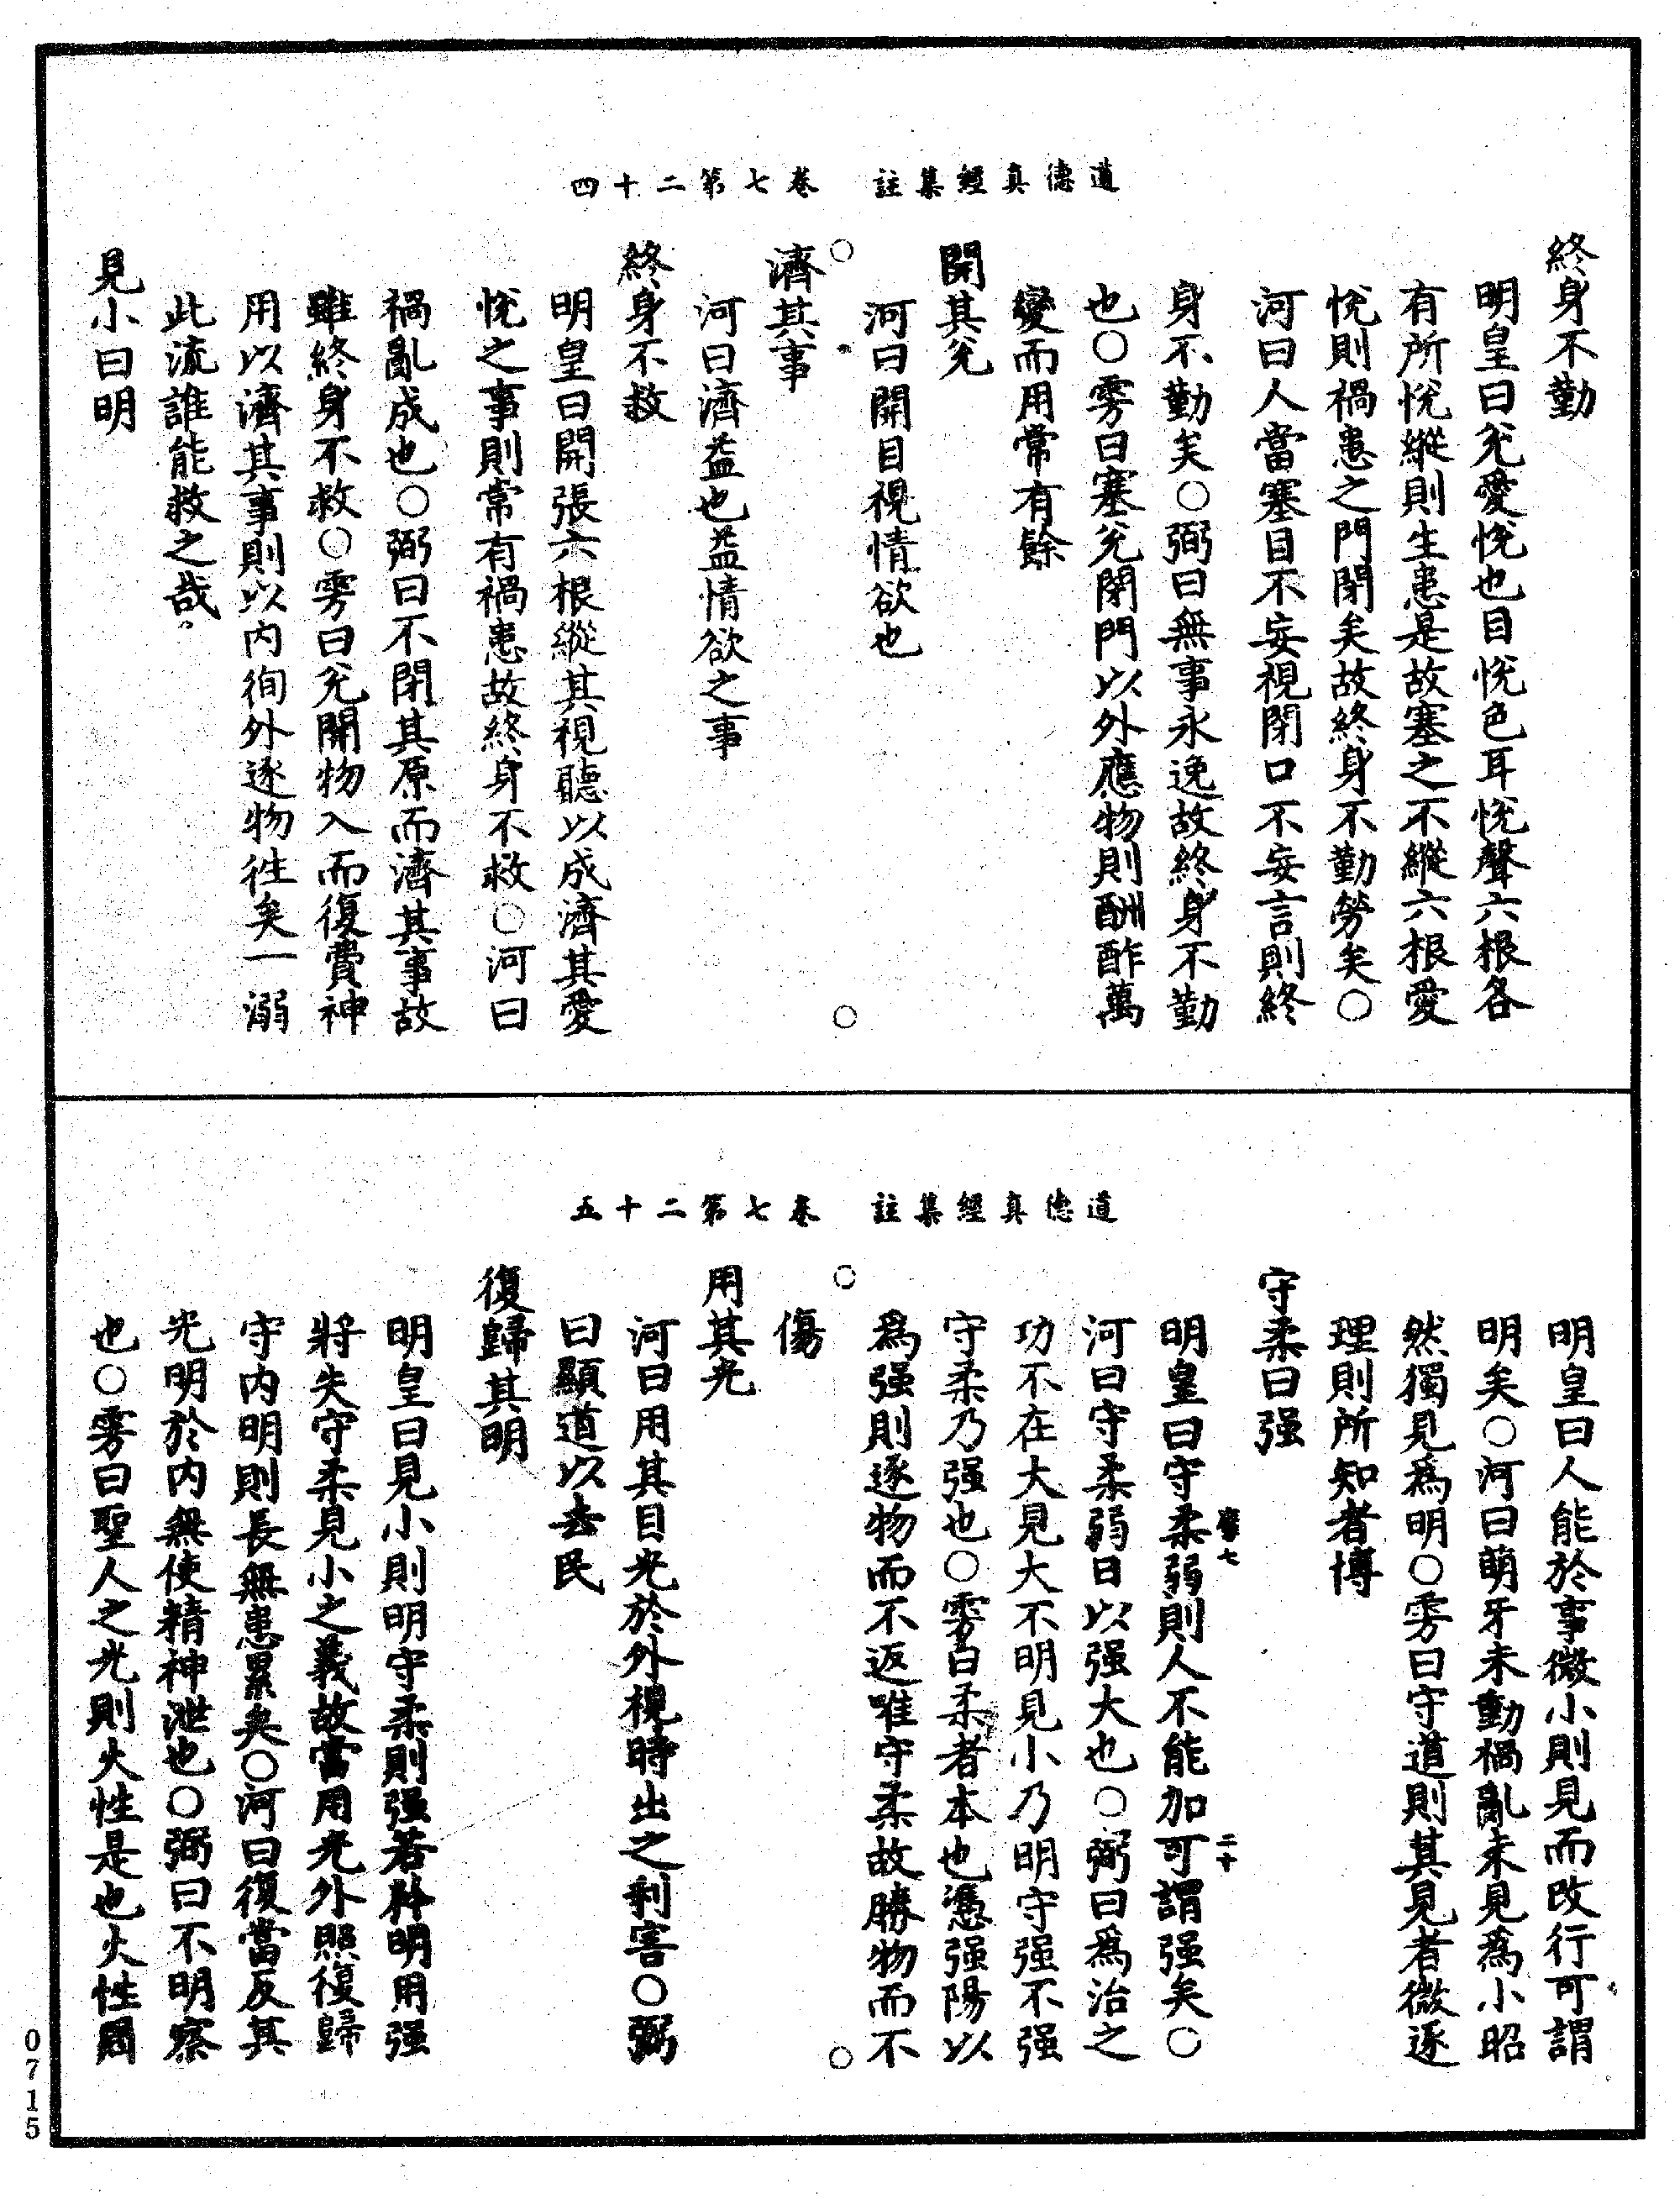 道德真經集註　卷七第二十四
終身不勤
明皇曰兊愛悅也目悅色耳悅聲六根各
有所悅縱則生患是故塞之不縱六根愛
悅則禍患之門閉矣故終身不勤勞矣○
河曰人當塞目不妄視閉口不妄言則終
身不勤矣○弼曰無事永逸故終身不勤
也○雱曰塞兊閉門以外應物則酬酢萬
變而用常有餘
開其兊
河曰開目視情欲也
濟其事
河曰濟益也益情欲之事
終身不救
明皇曰開張六根縱其視聽以成濟其愛
悅之事則常有禍患故終身不救○河曰
禍亂成也○弼曰不閉其原而濟其事故
雖終身不救○雱曰兊開物入而復費神
用以濟其事則以內徇外逐物徃矣一溺
此流誰能救之哉
見小曰明
道德真經集註　卷七第二十五
明皇曰人能於事微小則見而改行可謂
明矣○河曰萌牙未動禍亂未見爲小昭
然獨見爲明○雱曰守道則其見者微逐
理則所知者博
守柔曰强
明皇曰守柔弱則人不能加可謂强矣○
河曰守柔弱日以强大也○弼曰爲治之
功不在大見大不明見小乃明守强不强
守柔乃强也○雱曰柔者本也憑强陽以
爲强則逐物而不返唯守柔故勝物而不
傷
用其光
河曰用其目光於外視時出之利害○弼
曰顯道以去民
復歸其明
明皇曰見小則明守柔則强若矜明用强
將失守柔見小之義故當用光外照復歸
守內明則長無患累矣○河曰復當反其
光明於內無使精神泄也○弼曰不明察
也○雱曰聖人之光則火性是也火性周
0715